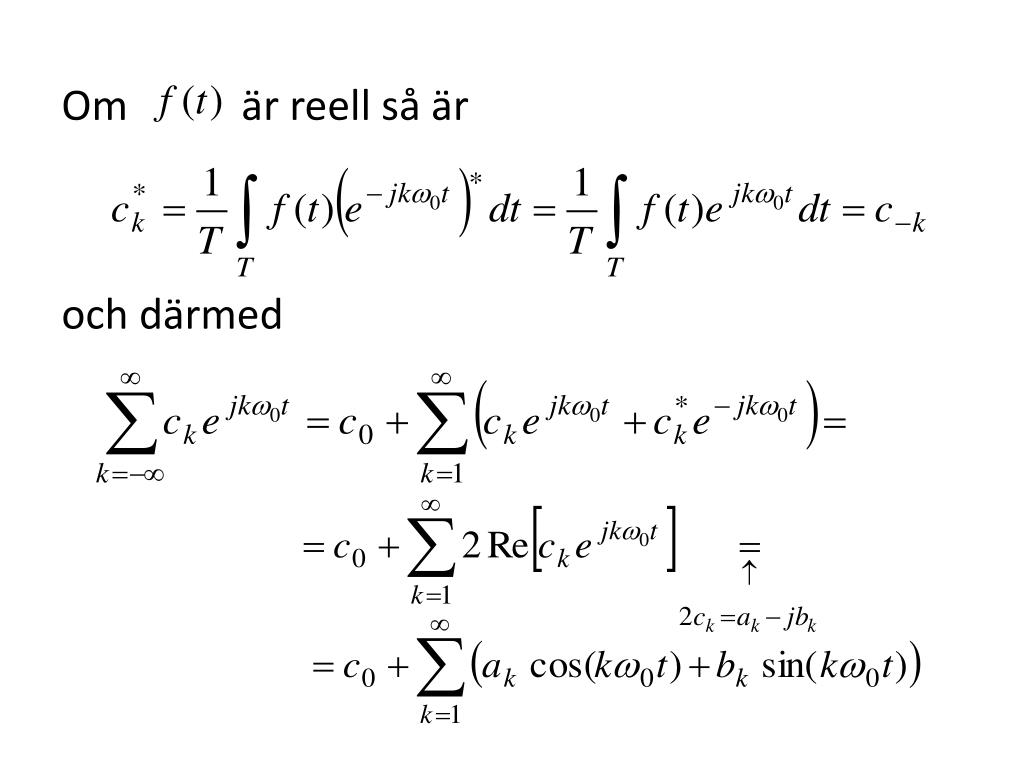 Om f(t) är reell så är
c_k^* = \frac{1}{T} \int_T f(t) \left( e^{-jk\omega_0 t} \right)^* dt = \frac{1}{T} \int_T f(t) e^{jk\omega_0 t} dt = c_{-k}
och därmed
\sum_{k=-\infty}^{\infty} c_k e^{jk\omega_0 t} = c_0 + \sum_{k=1}^{\infty} \left( c_k e^{jk\omega_0 t} + c_k^* e^{-jk\omega_0 t} \right) =
= c_0 + \sum_{k=1}^{\infty} 2 \operatorname{Re} \left[ c_k e^{jk\omega_0 t} \right] \underset{\underset{2c_k = a_k - jb_k}{\uparrow}}{=}
= c_0 + \sum_{k=1}^{\infty} \left( a_k \cos(k\omega_0 t) + b_k \sin(k\omega_0 t) \right)